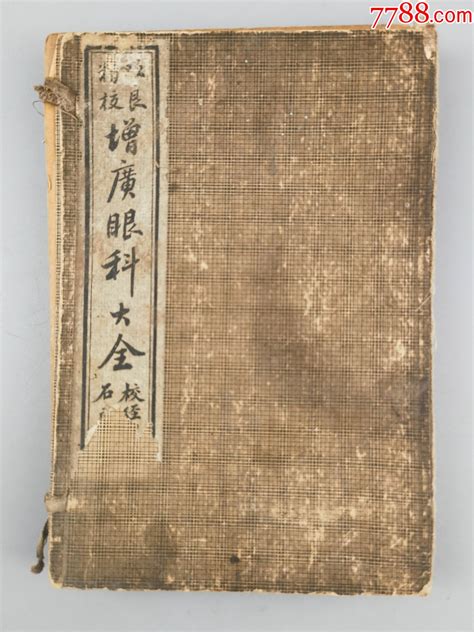 7788.com
改良
精校
增廣眼科大全
校經
石